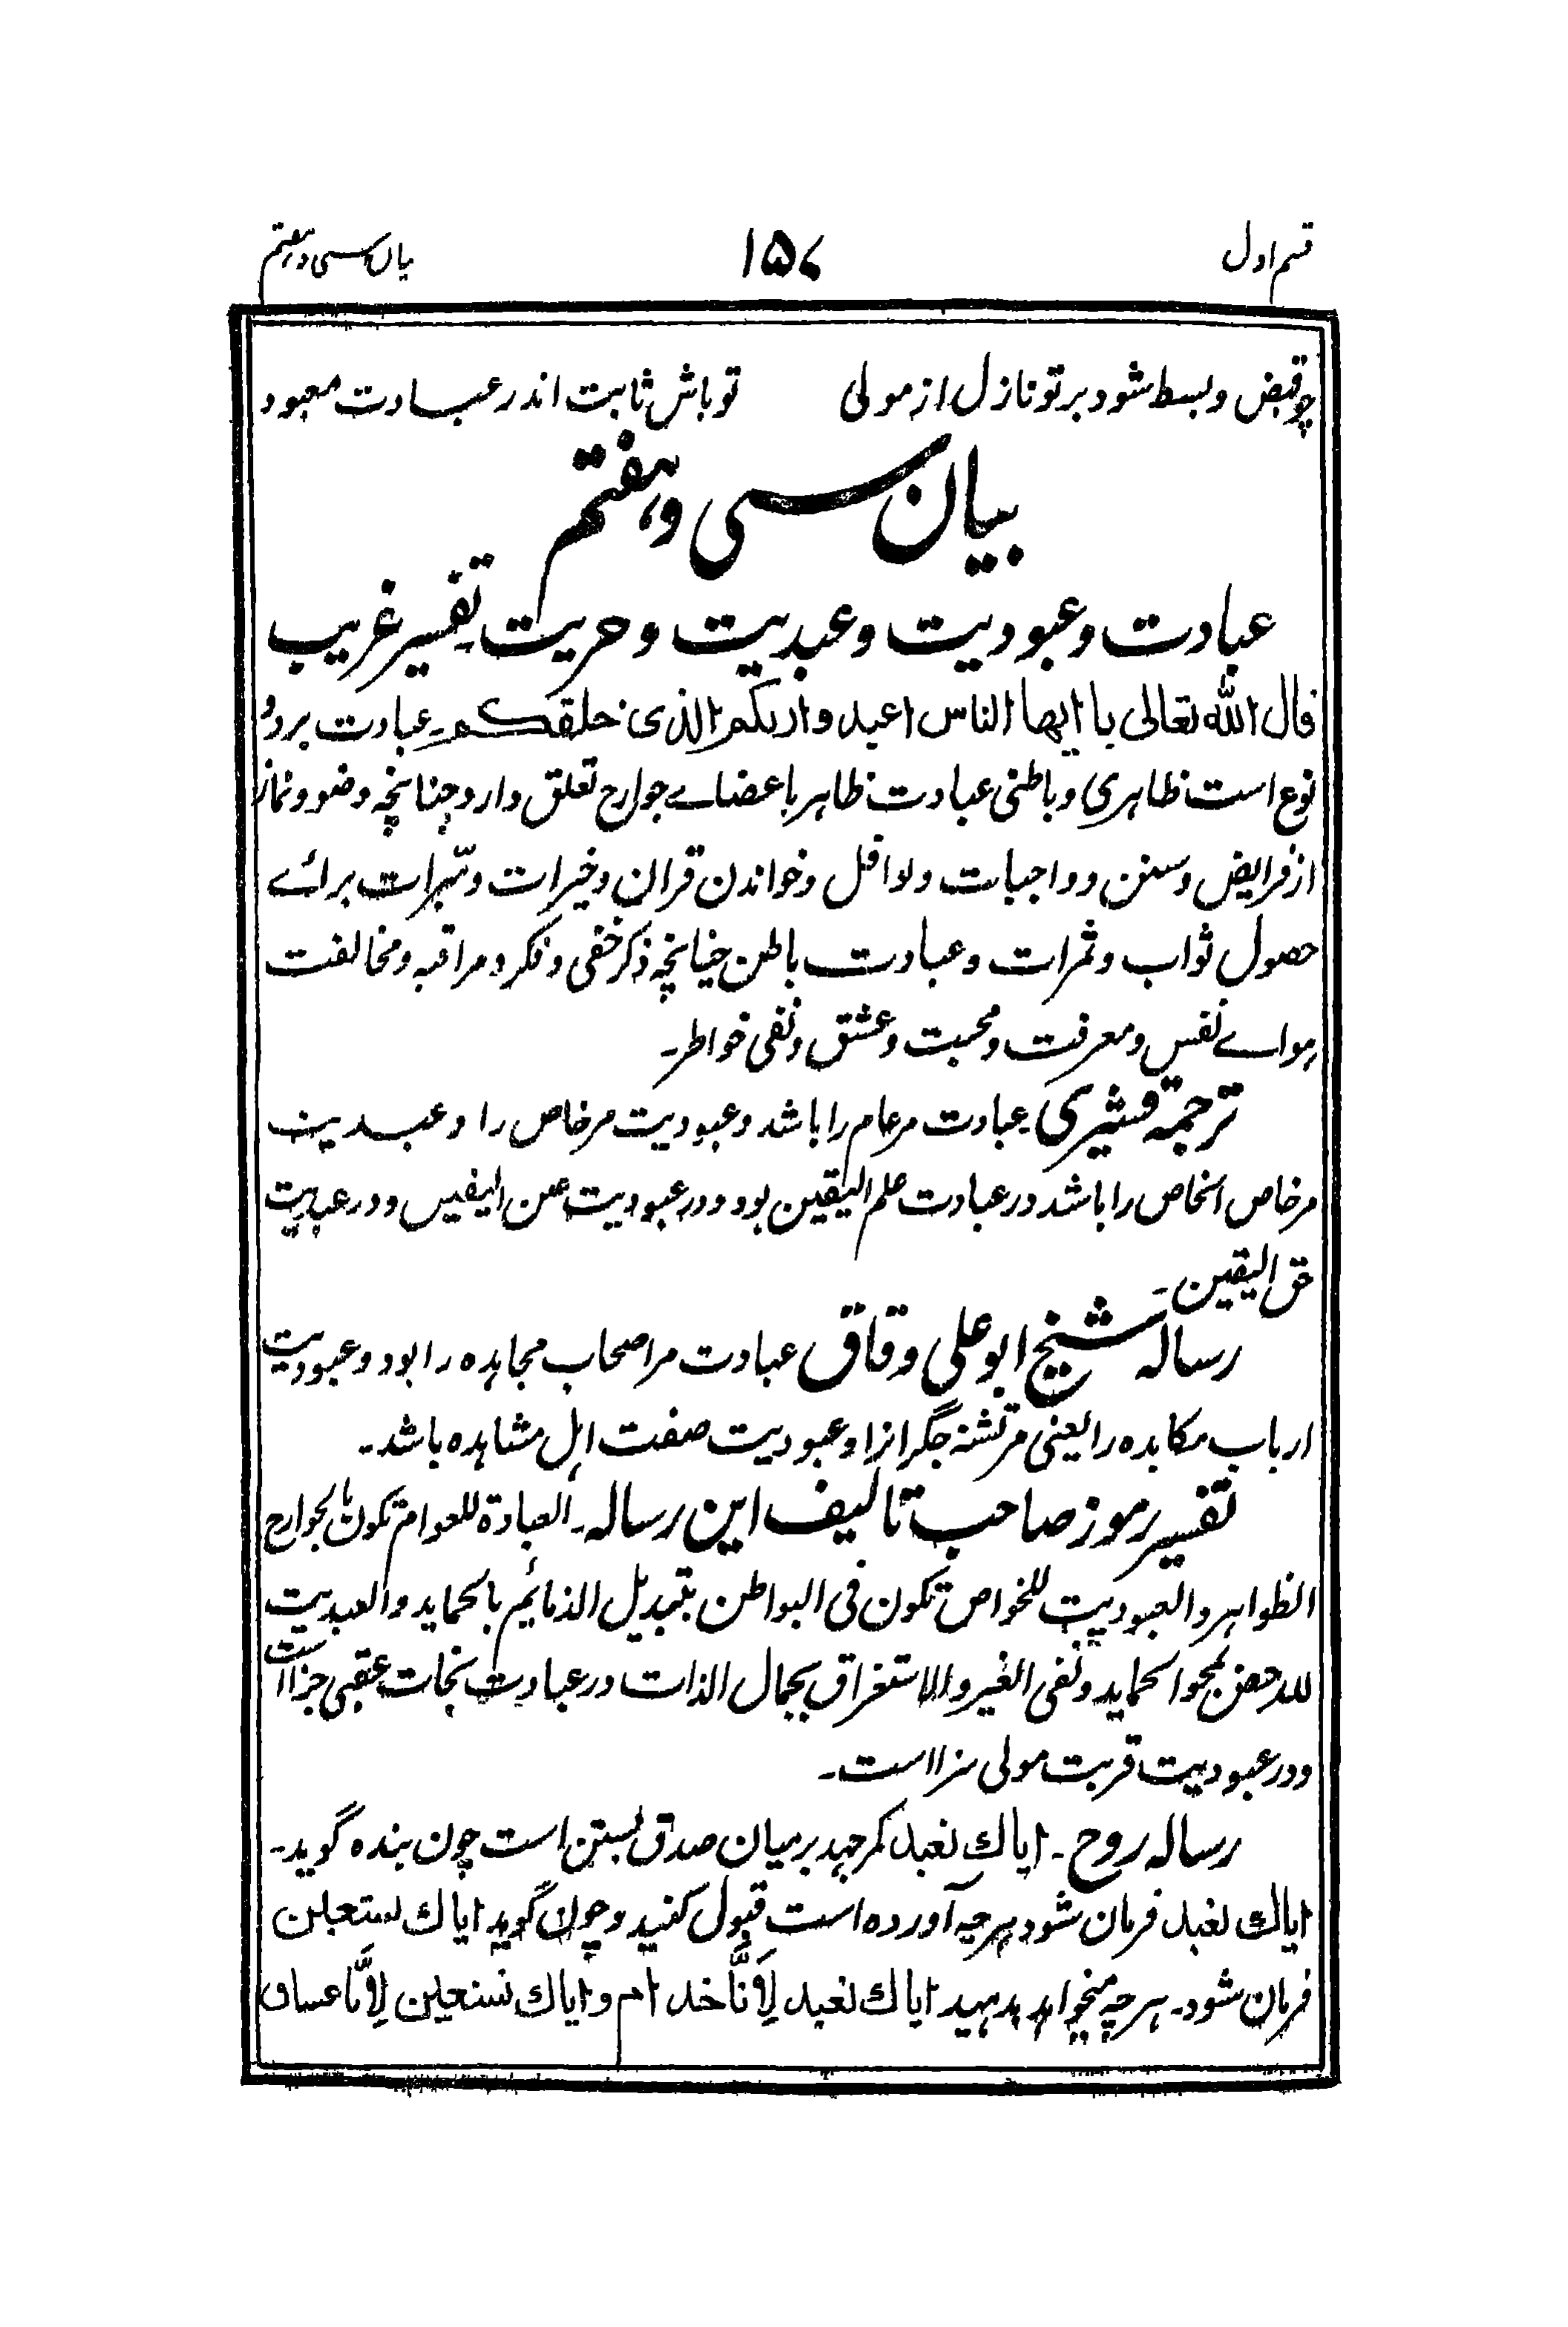 قسم اول ۱۵۷ بیان سی و ہفتم
چو قبض و بسط شود بر تو نازل از مولی تو باش ثابت اندر عبادت معبود
بیان سی و ہفتم
عبادت و عبودیت و عبدیت و حریت۔ تفسیر غریب
قال الله تعالى یا ایها الناس اعبدوا ربکم الذی خلقکم۔ عبادت بر دو
نوع است ظاہری و باطنی عبادت ظاہر باعضاے جوارح تعلق دارد چنانچہ وضو و نماز
از فرایض و سنن و واجبات و نوافل و خواندن قران و خیرات و مبرات برائے
حصول ثواب و ثمرات و عبادت باطن چنانچہ ذکر خفی و فکر و مراقبہ و مخالفت
ہواے نفس و معرفت و محبت و عشق و نفی خواطر۔
ترجمۃ قشیری عبادت مر عام را باشد و عبودیت مر خاص را و عبدیت
مر خاص الخاص را باشد در عبادت علم الیقین بود و در عبودیت عین الیقین و در عبدیت
حق الیقین۔
رسالہ شیخ ابو علی دقاق عبادت مر اصحاب مجاہدہ را بود و عبودیت
ارباب مکابدہ را یعنی مر تشنہ جگرانرا و عبودیت صفت اہل مشاہدہ باشد۔
تفسیر رموز صاحب تالیف این رسالہ۔ العبادة للعوام تکون بالجوارح
الظواہر و العبودیت للخواص تکون فی البواطن بتبدیل الذمائم بالحماید والعبدیت
للاخص بمحو الحماید و نفی الغیر والاستغراق بجمال الذات در عبادت نجات عقبی جزا است
و در عبودیت قربت مولی سزا است۔
رسالہ روح۔ ایاك نعبد کمر جہد بر میان صدق بستن است چون بندہ گوید۔
ایاك نعبد فرمان شود ہرچہ آوردہ است قبول کنید و چون گوید ایاك نستعین
فرمان شود۔ ہرچہ میخواہد بدہید ایاك نعبد لِاَنَّا خدام و ایاك نستعین لِاَنَّا